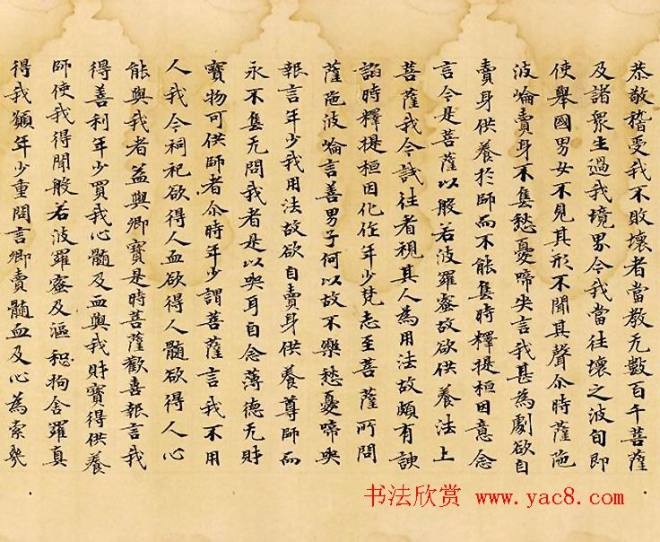 恭敬稽受我不敗壞者當教无數百千菩薩
及諸衆生過我境界今我當往壞之波旬即
使舉國男女不見其形不聞其聲尒時薩陁
波崘賣身不售愁憂啼哭言我甚為劇欲自
賣身供養於師而不能售時釋提桓因意念
言今是菩薩以般若波羅蜜故欲供養法上
菩薩我今試往者視其人為用法故頗有諛
諂時釋提桓因化作年少梵志至菩薩所問
薩陁波崘言善男子何以故不樂愁憂啼哭
報言年少我用法故欲自賣身供養尊師而
永不售无問我者是以哭耳自念薄德无財
寶物可供師者尒時年少謂菩薩言我不用
人我今祠祀欲得人血欲得人髓欲得人心
能與我者益與卿寶是時菩薩歡喜報言我
得善利年少買我心髓及血與我財寶得供養
師使我得聞般若波羅蜜及漚惒拘舍羅真
得我願年少重問言卿賣髓血及心為索幾
书法欣赏 www.yac8.com